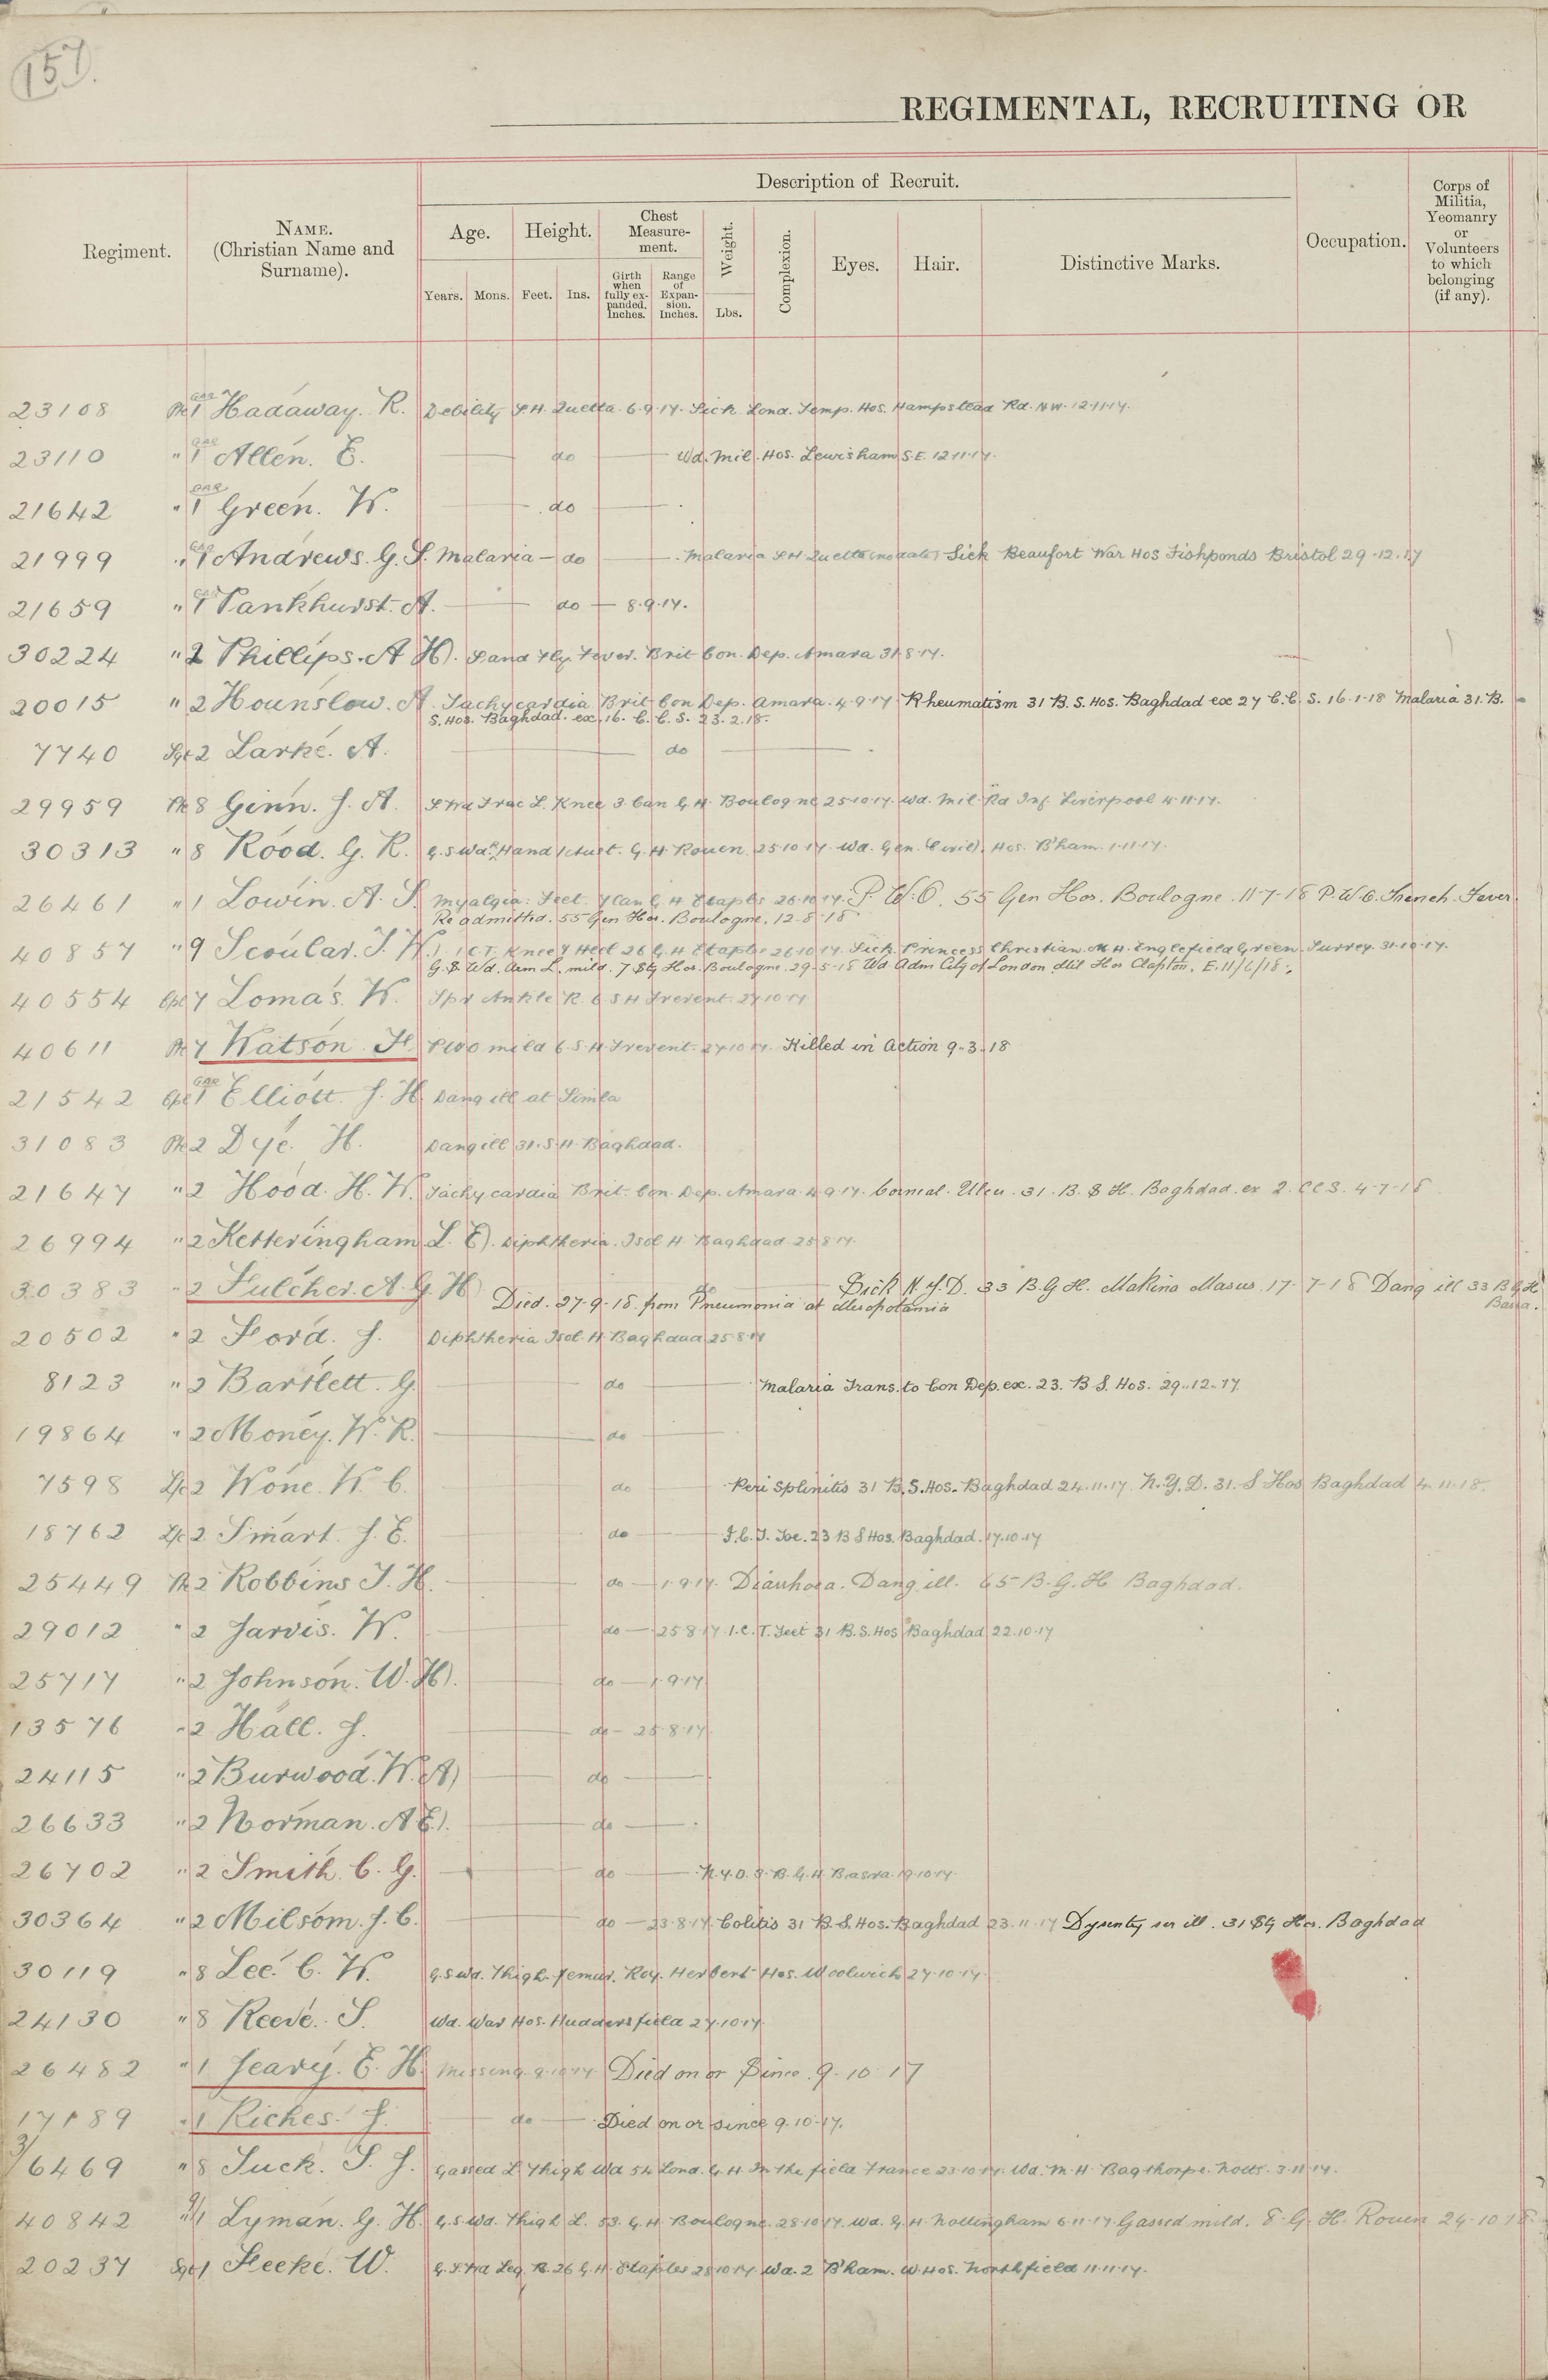 157.
REGIMENTAL, RECRUITING OR
Regiment.
NAME.
(Christian Name and
Surname).
Description of Recruit.
Age.
Years. Mons.
Height.
Feet. Ins.
Chest
Measure-
ment.
Girth
when
fully ex-
panded.
Inches.
Range
of
Expan-
sion.
Inches.
Weight.
Lbs.
Complexion.
Eyes.
Hair.
Distinctive Marks.
Occupation.
Corps of
Militia,
Yeomanry
or
Volunteers
to which
belonging
(if any).
23108 Pte 1 GAR Hadaway. R. Debility S.H. Quetta. 6.9.17. Sick Lond. Temp. Hos. Hampstead Rd. N.W. 12.11.17.
23110 " 1 GAR Allen. E. do Wd. Mil. Hos. Lewisham S.E. 12.11.17.
21642 " 1 GAR Green. W. do
21999 " 1 GAR Andrews. G. S. Malaria - do Malaria S.H Quetta (no date) Sick Beaufort War Hos Fishponds Bristol 29.12.17
21659 " 1 GAR Pankhurst. A. do 8.9.17.
30224 " 2 Phillips. A H). Sand Fly Fever. Brit Con. Dep. Amara 31.8.17.
20015 " 2 Hounslow. A. Tachycardia Brit Con Dep. Amara. 4.9.17 Rheumatism 31 B. S. Hos. Baghdad ex 27 C.C. S. 16.1.18 Malaria 31. B.
S. Hos. Baghdad. ex. 16. C. C. S. 23.2.18.
7740 Sgt 2 Larke. A. do
29959 Pte 8 Ginn. J. A. S. Wd Frac L. Knee 3 Can G. H. Boulogne 25.10.17. Wd. Mil. Rd Inf. Liverpool 4.11.17.
30313 " 8 Rood. G. R. G.S Wd. R. Hand 1 Aust. G. H. Rouen 25.10.17. Wd. Gen. (Civil). Hos. B'ham. 1.11.17.
26461 " 1 Lowin. A. S. Myalgia. Feet. 7 Can G H Etaples 26.10.17. P. U. O. 55 Gen Hos. Boulogne. 11-7-18 P.U.O. Trench Fever.
Readmitted. 55 Gen Hos. Boulogne. 12-8-18
40857 " 9 Scoular. J. W. I C T. Knee & Heel 26 G. H Etaples 26.10.17. Sick Princess Christian. M. H. Englefield Green. Surrey. 31.10.17.
G. S Wd. Arm L. mild. 7 Stg Hos. Boulogne. 29-5-18 Wd Adm City of London Mil Hos Clapton. E. 11/6/18.
40554 Cpl 7 Lomas. W. Spr Ankle R. 6 S H Frevent. 27.10.17
40611 Pte 7 Watson H. PUO mild 6. S. H Frevent. 27.10.17. Killed in Action 9.3.18
21542 Cpl 1 GAR Elliott. J. H Dang ill at Simla
31083 Pte 2 Dye. H. Dang ill 31. S. H. Baghdad.
21647 " 2 Hood. H. W. Tachycardia Brit. Con. Dep. Amara 4.9.17. Corneal. Ulcer. 31. B. S H. Baghdad ex 2. CCS. 4-7-18
26994 " 2 Ketteringham L. E). Diphtheria. Isol H. Baghdad 25.8.17.
30383 " 2 Fulcher. A. G. H) do Sick N.Y.D. 33 B.G H. Makina Masus. 17-7-18 Dang ill 33 B G H
Basra.
Died. 27-9-18 from Pneumonia at Mesopotamia
20502 " 2 Ford. J. Diphtheria Isol. H. Baghdad 25.8.17
8123 " 2 Bartlett. G. do Malaria Trans. to Con Dep. ex. 23. B S. Hos. 29.12.17.
19864 " 2 Money. W. R. do
7598 L/c 2 Wone. W. C. do Peri Splinitis 31 B. S. Hos. Baghdad 24.11.17. N.Y.D. 31. S Hos Baghdad 4.11.18.
18762 L/c 2 Smart. J. E. do I.C.T. Toe. 23 B S Hos. Baghdad. 17.10.17
25449 Pte 2 Robbins J. H. do 1.9.17. Diarrhoea. Dang ill. 65 B. G. H Baghdad.
29012 " 2 Jarvis. W. do 25.8.17 I.C.T. Feet 31 B. S. Hos Baghdad 22.10.17
25717 " 2 Johnson. W. H). do 1.9.17
13576 " 2 Hall. J. do 25.8.17.
24115 " 2 Burwood. W. A) do
26633 " 2 Norman. A E). do
26702 " 2 Smith. C. G. do N.Y.D. 3. B. G. H Basra. 19.10.17.
30364 " 2 Milsom. J. C. do 23.8.17. Colitis 31 B. S. Hos. Baghdad 23.11.17 Dysentry ser ill. 31 Stg Hos. Baghdad
30119 " 8 Lee. C. W. G.S Wd. Thigh Femur. Roy. Herbert Hos. Woolwich 27.10.17.
24130 " 8 Reeve. S. Wd. War Hos. Huddersfield 27.10.17.
26482 " 1 Jeary. E. H. Missing 9.10.17. Died on or Since. 9-10-17
17189 " 1 Riches. J. do Died on or since 9.10.17.
3/6469 " 8 Tuck. S. J. Gassed L Thigh Wd 54 Lond. G. H. In the field France 23.10.17. Wd. M. H Bagthorpe. Notts. 3.11.17.
40842 " 9/1 Lyman. G. H. G.S. Wd. Thigh L. 53. G. H. Boulogne. 28.10.17. Wd. G. H. Nottingham 6.11.17. Gassed mild. 8. G. H. Rouen 24-10-18.
20237 Sgt 1 Feeke. W. G. S. Wd Leg R. 26 G. H. Etaples 28.10.17. Wd. 2 B'ham. W. Hos. Northfield 11.11.17.